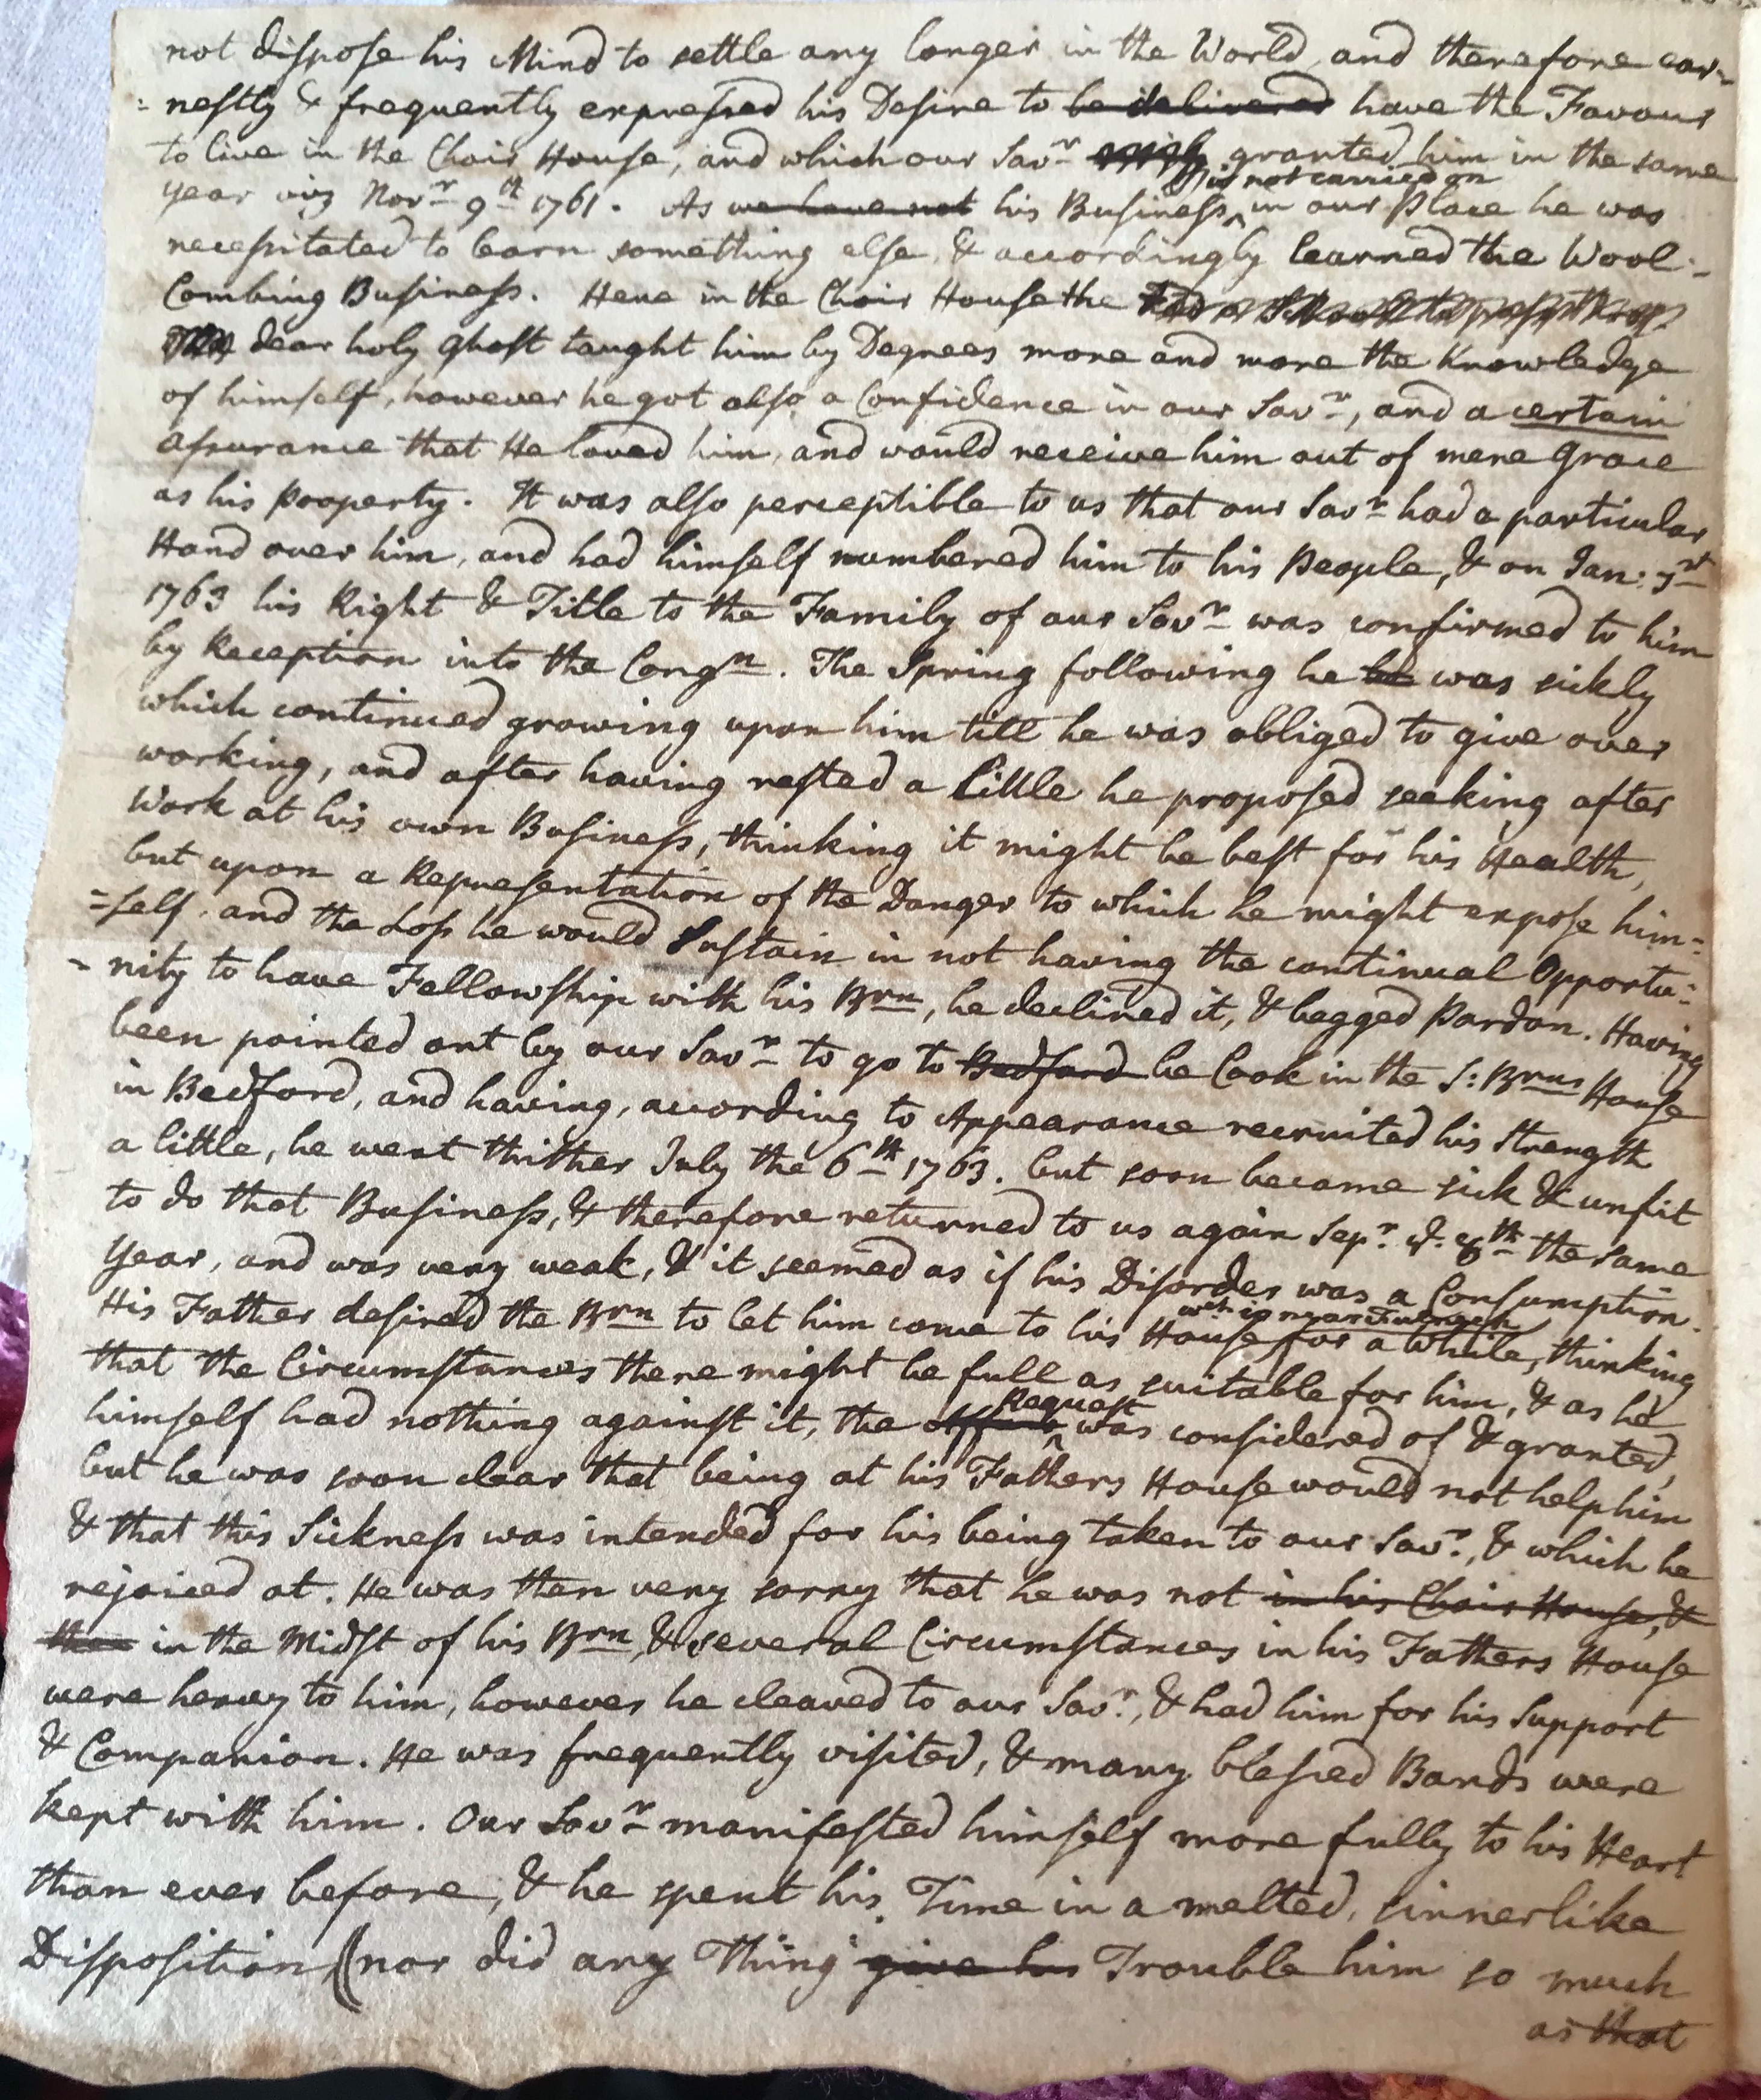 not dispose his Mind to settle any longer in the World, and therefore ear-
= nestly & frequently expressed his Desire to be delivered have the Favour
to live in the Choir House, and which our Savr granted him in the same
is not carried on
year viz Novr 9th 1761. As we have not his Business ^ in our Place he was
necessitated to learn something else, & accordingly learned the Wool-
Combing Business. Here in the Choir House the
dear holy Ghost taught him by Degrees more and more the Knowledge
of himself, however he got also a Confidence in our Savr, and a certain
Assurance that He loved him, and would receive him out of mere Grace
as his Property. It was also perceptible to us that our Savr had a particular
Hand over him, and had himself numbered him to his People, & on Jan:
1763 his Right & Title to the Family of our Savr was confirmed to him
by Reception into the Congn. The Spring following he was sickly
which continued growing upon him till he was obliged to give over
working, and after having rested a little he proposed seeking after
Work at his own Business, thinking it might be best for his Health,
but upon a Representation of the Danger to which he might expose him=
=self. and the Loss he would Sustain in not having the continual Opportu=
- nity to have Fellowship with his Brn, he declined it, & begged Pardon. Having
been pointed out by our Savr to go to Bedford he Cook in the S: Brns House
in Bedford, and having, according to Appearance recruited his Strength
a little, he went thither July the 6th 1763. but soon became sick & unfit
to do that Business, & therefore returned to us again Sepr. the same
Year, and was very weak, & it seemed as if his Disorder was a Consumption.
wch is near
His Father desired the Brn to let him come to his House for a While, thinking
that the Circumstances there might be full as suitable for him, & as he
Request
himself had nothing against it, the ^ was considered of & granted,
but he was soon clear that being at his Fathers House would not help him
& that this Sickness was intended for his being taken to our Savr., & which he
rejoiced at. He was then very sorry that he was not in his Choir House, &
in the Midst of his Brn, & several Circumstances in his Fathers House
were heavy to him, however he cleaved to our Savr., & had him for his Support
& Companion. He was frequently visited, & many blessed Bands were
kept with him. Our Savr manifested himself more fully to his Heart
than ever before, & he spent his Time in a melted, sinnerlike
Disposition (nor did any Thing give his Trouble him so much
as that